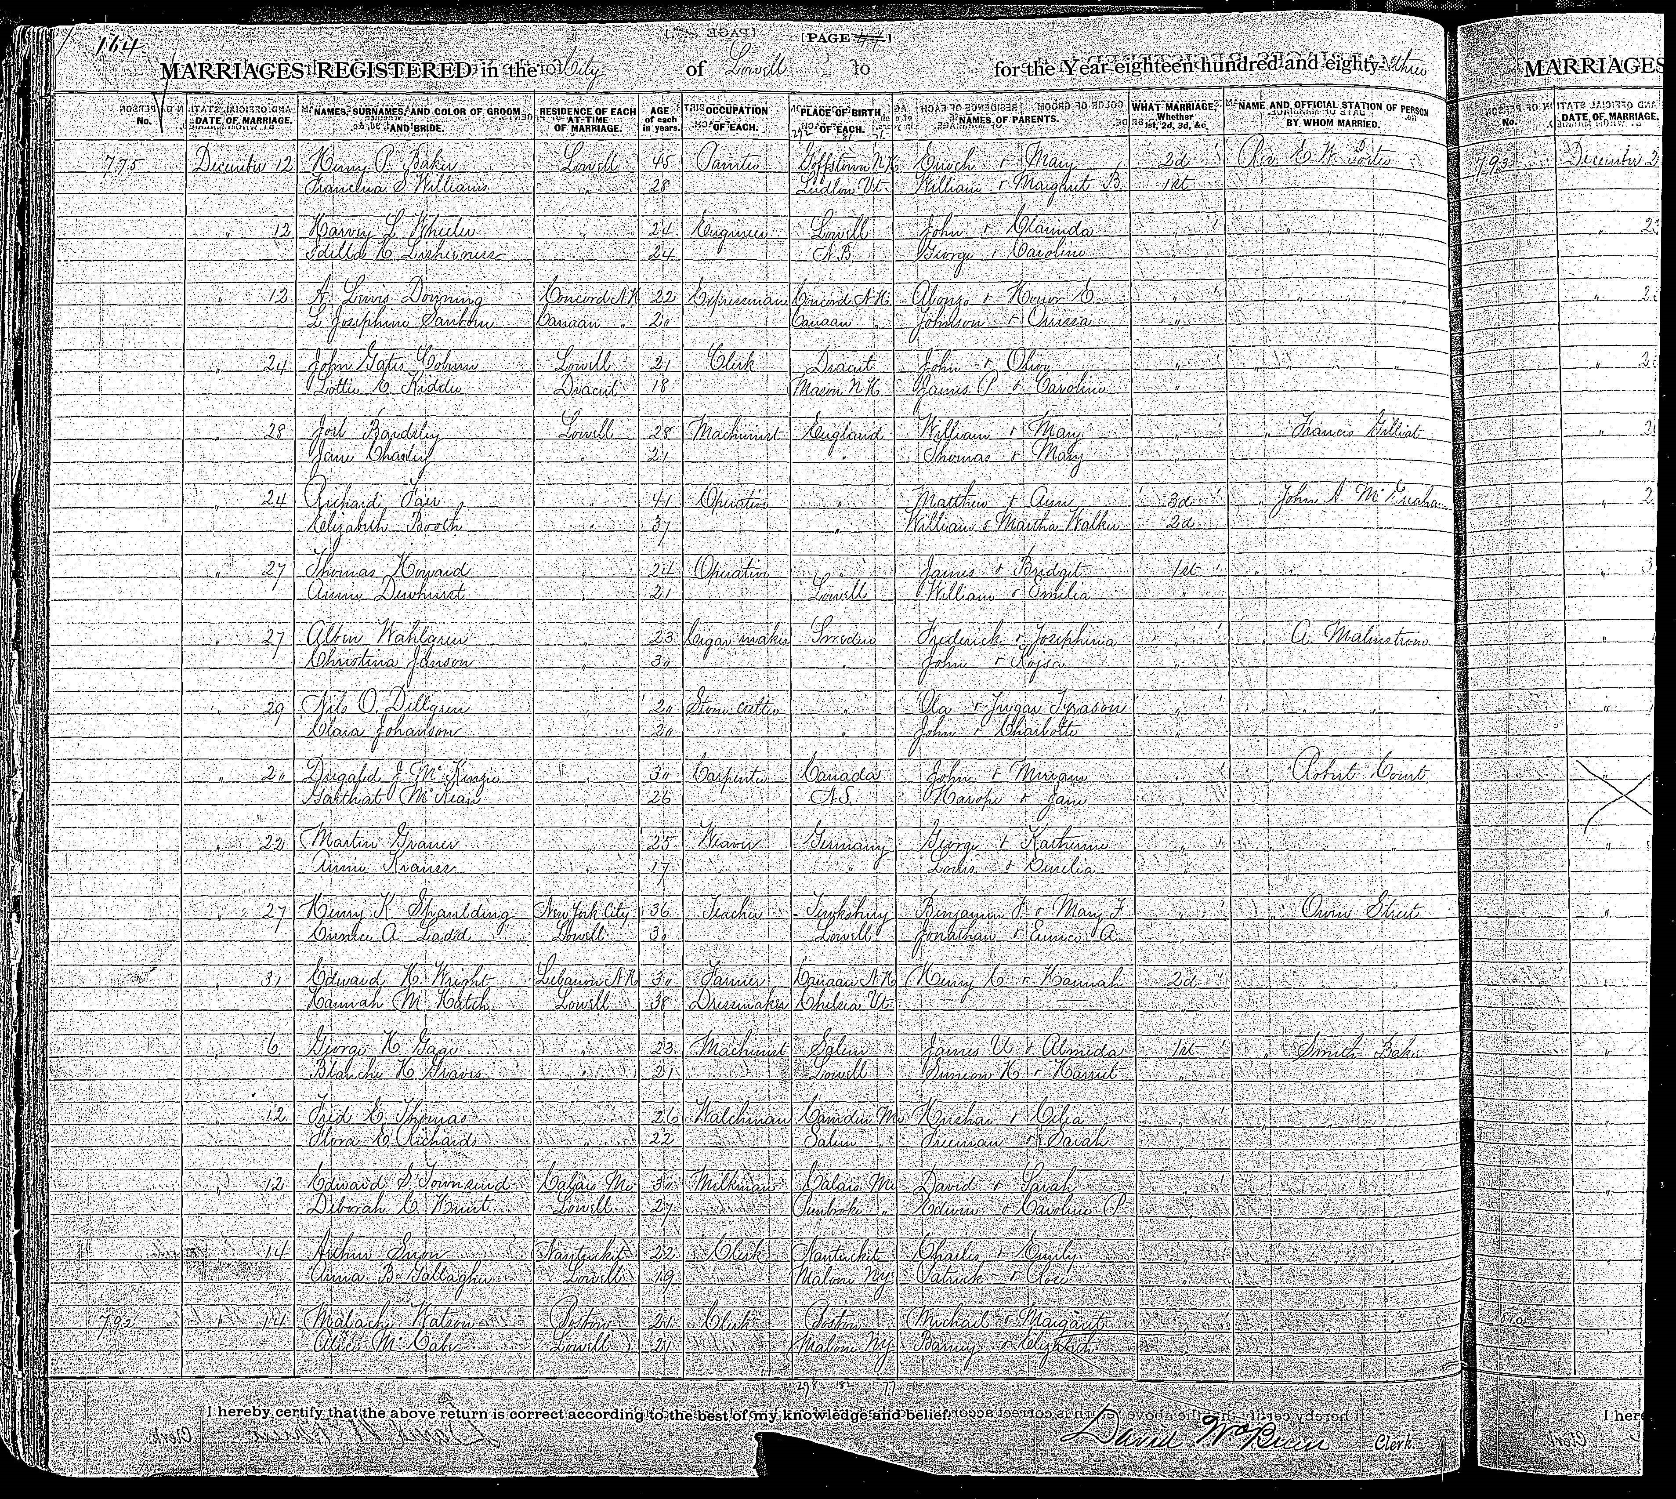 164
[PAGE
MARRIAGES REGISTERED in the City of Lowell for the Year eighteen hundred and eighty-three
No. DATE OF MARRIAGE. NAMES, SURNAMES, AND COLOR OF GROOM AND BRIDE. RESIDENCE OF EACH AT TIME OF MARRIAGE. AGE of each in years. OCCUPATION OF EACH. PLACE OF BIRTH OF EACH. NAMES OF PARENTS. WHAT MARRIAGE, Whether 1st, 2d, 3d, &c. NAME AND OFFICIAL STATION OF PERSON BY WHOM MARRIED.
775 December 12 Henry P. Baker Lowell 45 Painter Goffstown N.H. Enoch & Mary 2d Rev. E. W. Porter
Francena S. Williams " 28 Ludlow Vt. William & Margaret B. 1st
" 12 Harvey L. Wheeler " 24 Engineer Lowell John & Clarinda " "
H. Lisherness " 24 N.B. George & Caroline
" 12 A. Lewis Downing Concord N.H. 22 Expressman Concord N.H. Alonzo & Honor E. " "
L. Josephine Sanborn Canaan " 20 Canaan " Johnson & "
" 24 John Gates Coburn Lowell 21 Clerk Dracut John & Olive " "
Lottie C. Kidder Dracut 18 Mason N.H. James P. & Caroline "
" 28 Joel Bardsley Lowell 28 Machinist England William & Mary " " Francis Gilliat
Jane " 21 " Thomas & Mary "
" 24 Richard Fair " 41 Operative " Matthew & Ann 3d " John A. M
Elizabeth Booth " 37 " William & Martha Walker 2d
" 27 Thomas Howard " 24 Operative " James & Bridget 1st "
Annie Dewhurst " 21 Lowell William & Emelia "
" 27 Albin Wahlgren " 23 Cigar maker Sweden Frederick & Josephina " " A. Malmstrom
Christina Johnson " 30 " John & "
" 29 Nils O. Dillgren " 20 Stone cutter " Ola & " "
Clara Johanson " 20 " John & Charlotte "
" 20 J. McKinzie " 30 Carpenter Canada John & " " Robert Court
McKean " 26 N.S. & Jane
" 22 Martin Graner " 25 Weaver Germany George & Katherine " "
Annie Krauss " 17 " Louis & Emelia
" 27 Henry K. Spaulding New York City 36 Teacher Tewksbury Benjamin F. & Mary F. " " Owen Street
Eunice A. Ladd Lowell 30 Lowell Jonathan & Eunice A.
" 31 Edward H. Wright Lebanon N.H. 30 Farmer Canaan N.H. Henry C. & Hannah 2d "
Hannah M. Hatch Lowell 38 Dressmaker Chelsea Vt.
" 6 George H. Gage " 23 Machinist Salem James U. & Almeda 1st " Smith Baker
Blanche H. Graves " 21 Lowell H. & Harriet "
" 12 Fred E. Thomas " 26 Watchman Camden Me & Celia " "
Flora E. Richard " 22 Salem " Freeman & Sarah "
" 12 Edward S. Townsend Calais Me 30 Milkman Calais Me David & Sarah " "
Deborah C. Lowell 27 Pembroke " Edwin & Caroline P. "
" 14 Arthur Nantucket 22 Clerk Nantucket Charles & Emily " "
Anna B. Gallagher Lowell 19 Malone N.Y. Patrick & Rose "
792 " 14 Malachi Watson Boston 21 Clerk Boston Michael & Margaret " "
Alice McCabe Lowell 21 Malone N.Y. Barney & Elizabeth "
I hereby certify that the above return is correct according to the best of my knowledge and belief.
David Clerk.
MARRIAGES
No. DATE OF MARRIAGE.
793 December
I here